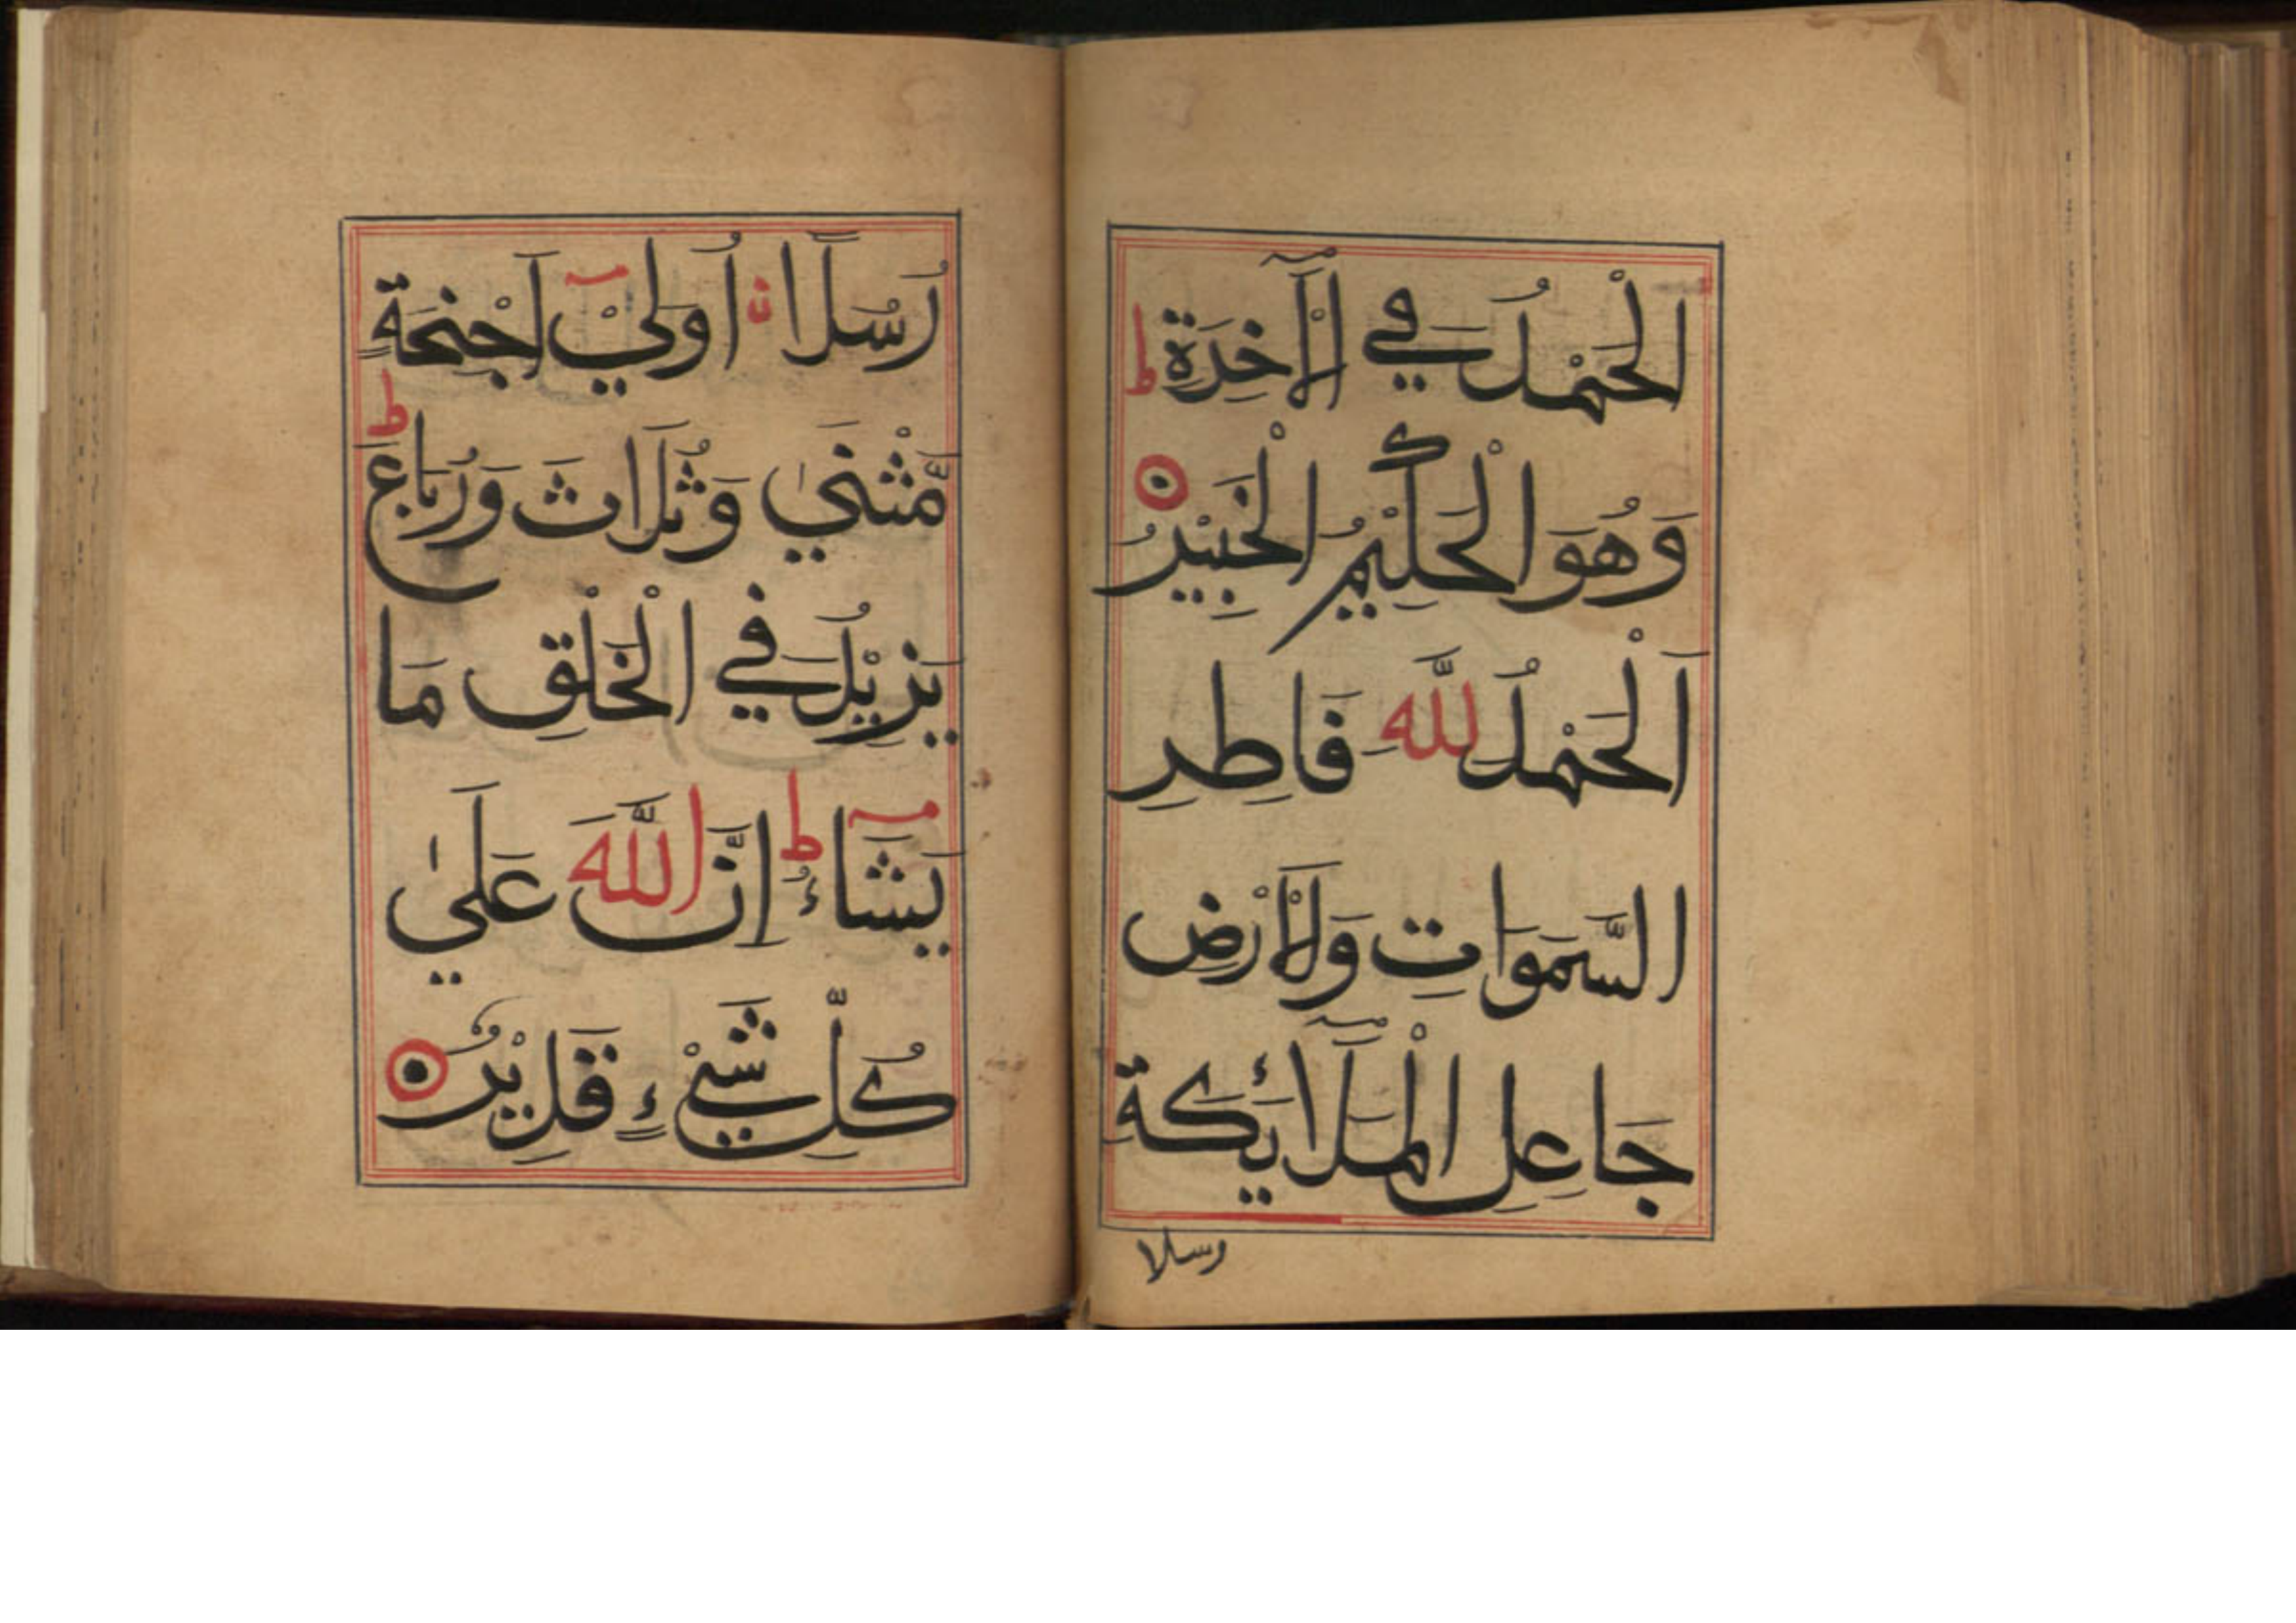 الْحَمْدُ فِي الْآخِرَةِ ط
وَهُوَ الْحَكِيْمُ الْخَبِيْرُ
اَلْحَمْدُ لِلّٰهِ فَاطِرِ
السَّمَوَاتِ وَالْاَرْضِ
جَاعِلِ الْمَلَآئِكَةِ
رسلا
رُسُلًا اُولِيْ اَجْنِحَةٍ
مَّثْنٰي وَثُلَاثَ وَرُبَاعَ ط
يَزِيْدُ فِي الْخَلْقِ مَا
يَشَآءُ ط اِنَّ اللّٰهَ عَلٰي
كُلِّ شَيْءٍ قَدِيْرٌ